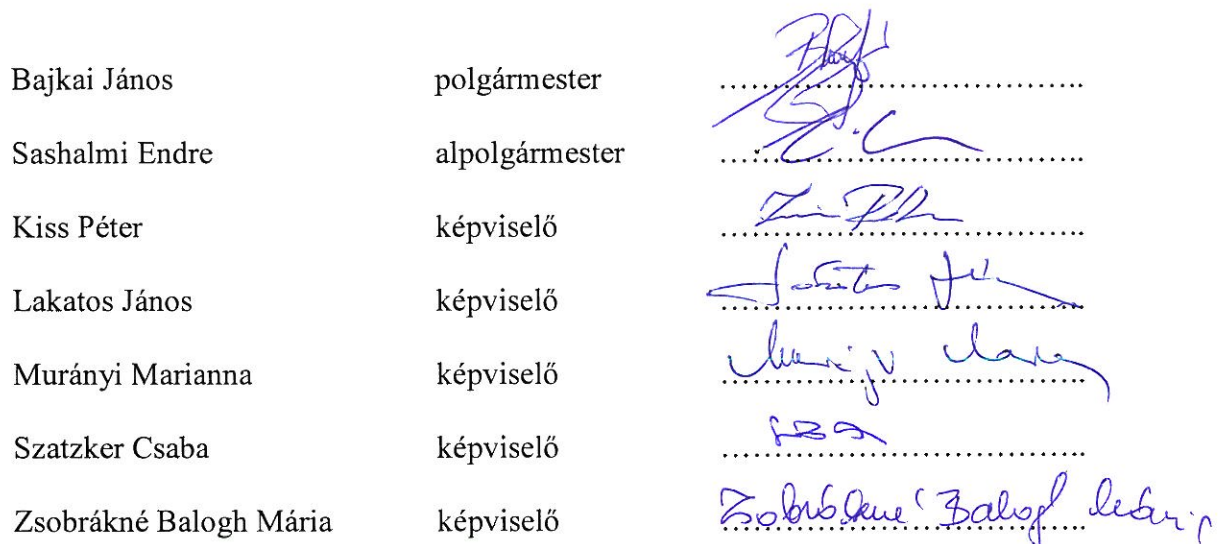 Bajkai János polgármester
Sashalmi Endre alpolgármester
Kiss Péter képviselő
Lakatos János képviselő
Murányi Marianna képviselő
Szatzker Csaba képviselő
Zsobrákné Balogh Mária képviselő Zsobrákné Balogh Mária